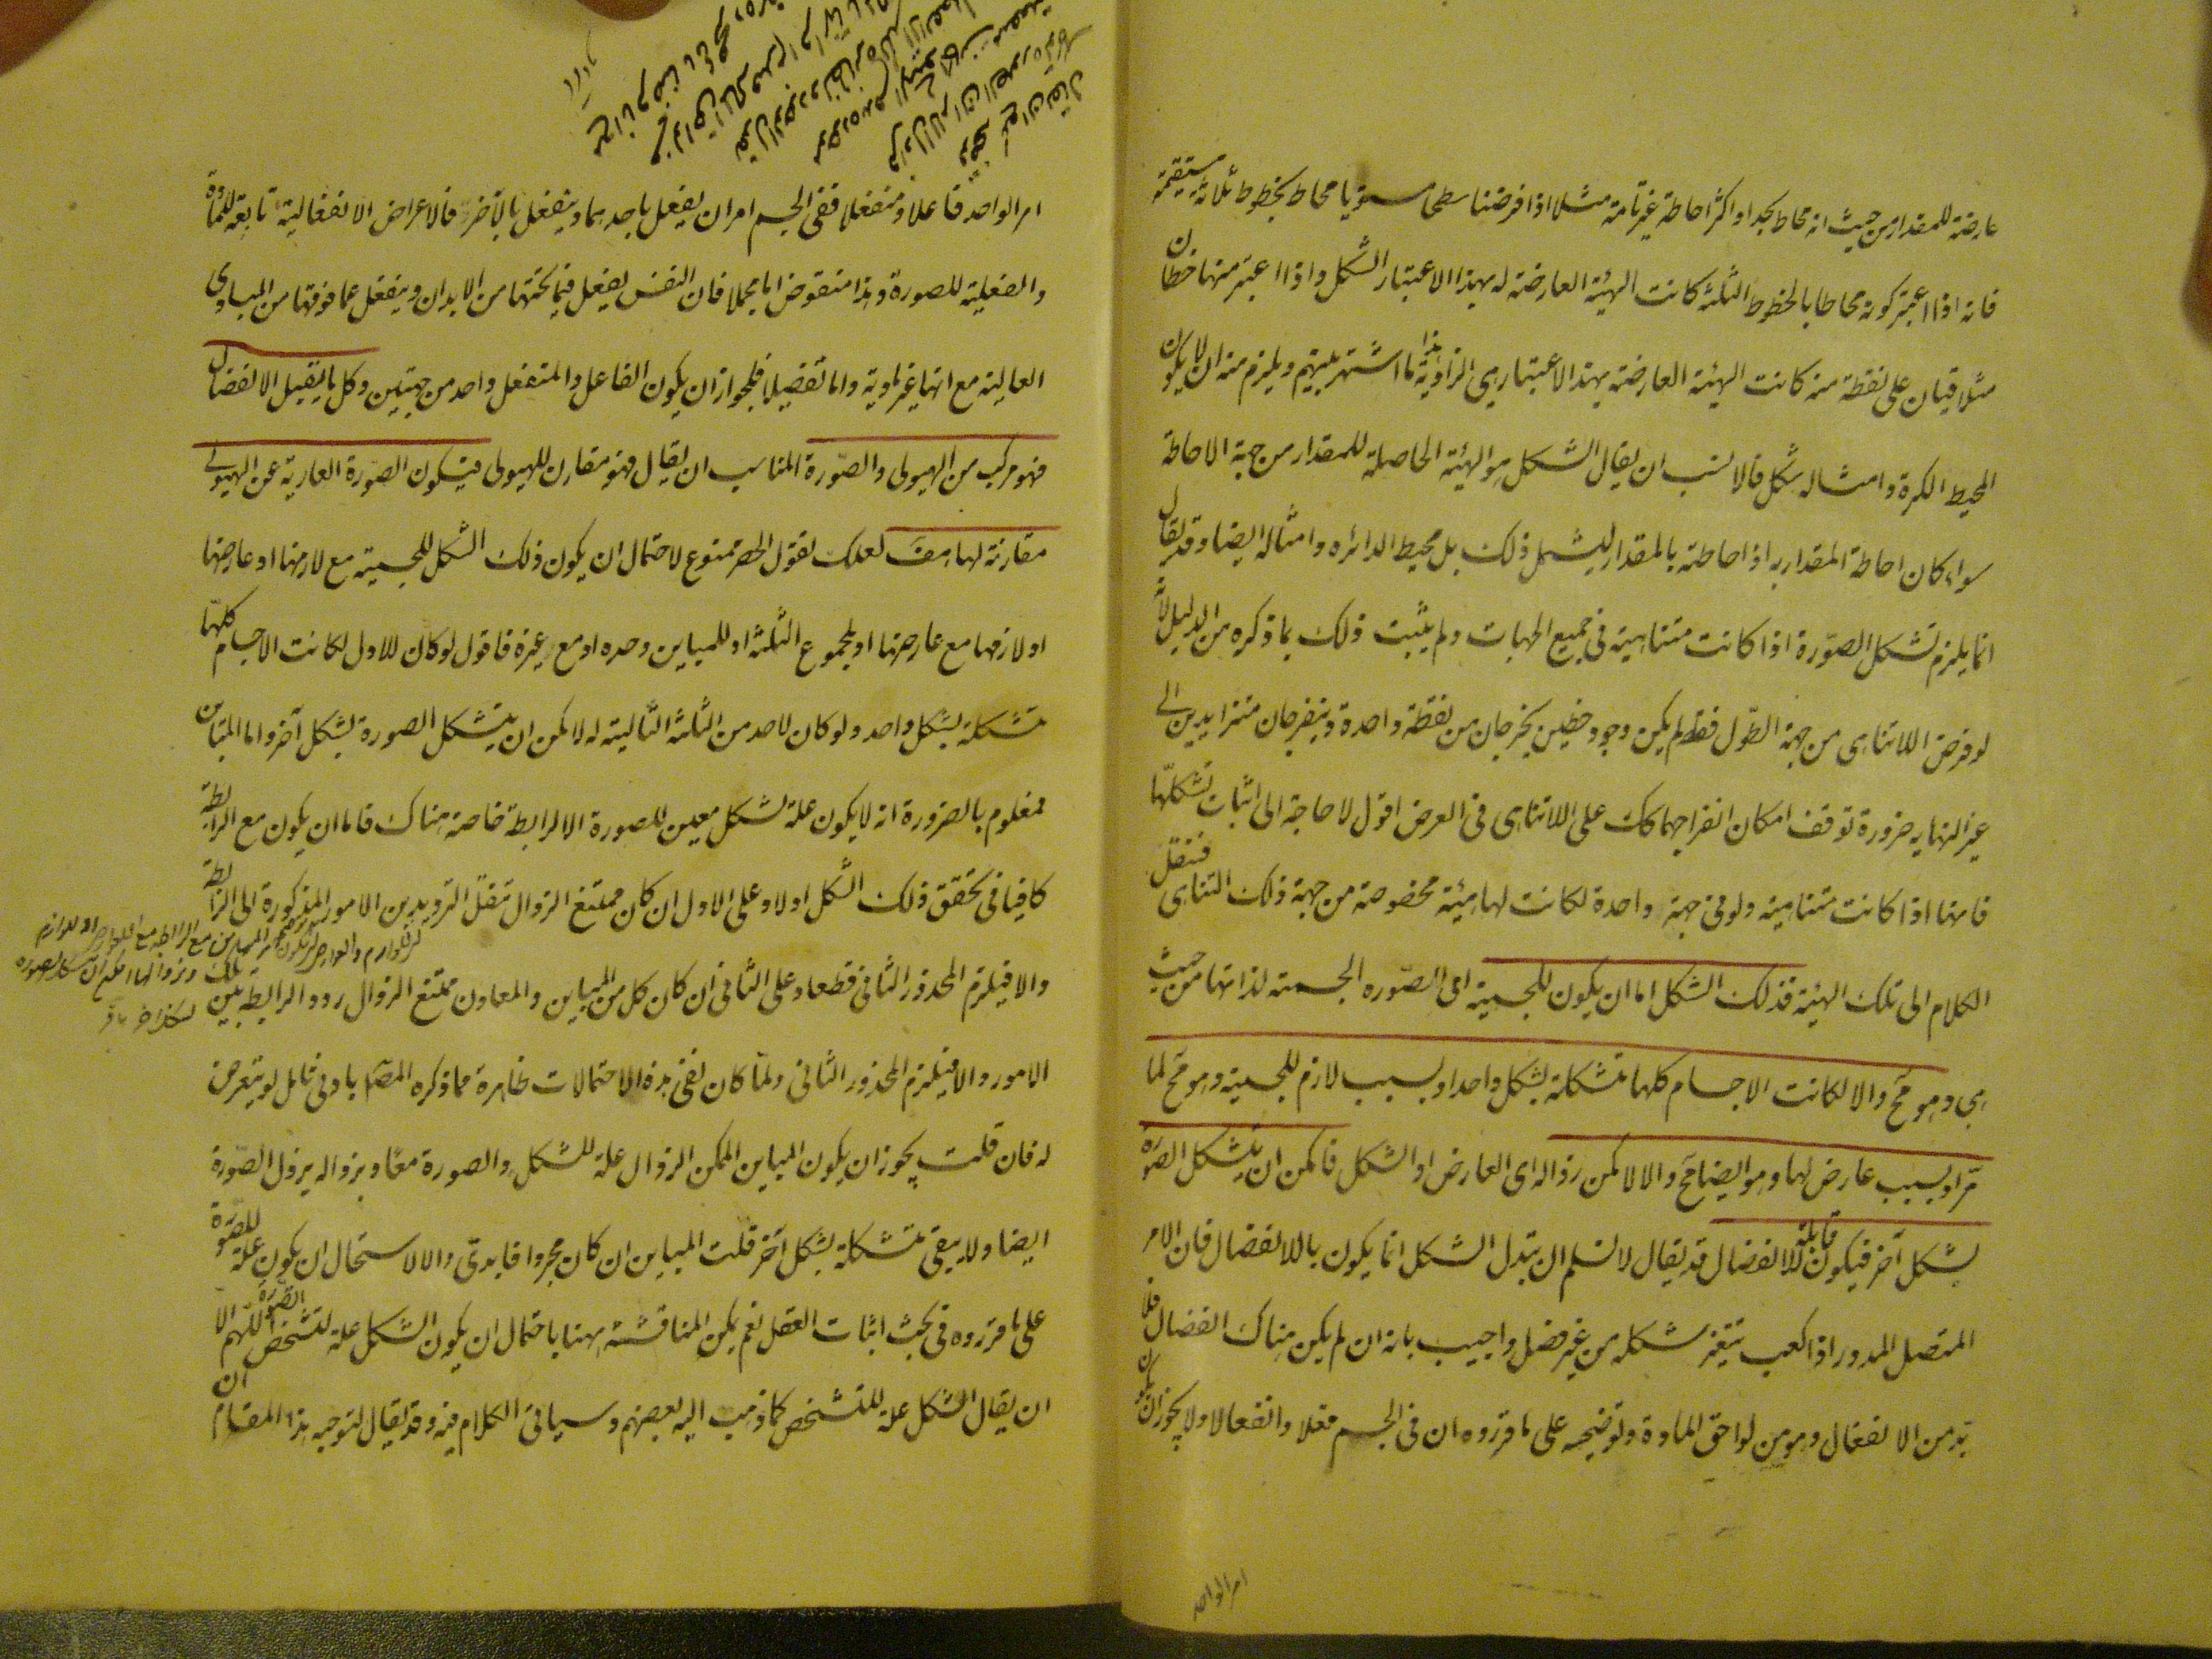 عارضة للمقدار من حيث انه محاط بحد او اكثر احاطة غير تامة مثلا اذا فرضنا سطحا مستويا محاط بخطوط ثلاثة مستقيمة
فانه اذا اعتبر كونه محاطا بالخطوط الثلثة كانت الهيئة العارضة له بهذا الاعتبار الشكل واذا اعتبر منها خطان
متلاقيان على نقطة منه كانت الهيئة العارضة بهذا الاعتبار هي الزاوية هذا ما اشتهر بينهم ويلزم منه ان لا يكون
المحيط الكرة وامثاله شكل فالانسب ان يقال الشكل هو الهيئة الحاصلة للمقدار من جهة الاحاطة
سواء كان احاطة المقدار به اذا احاطته بالمقدار ليشمل ذلك بل محيط الدائره وامثاله ايضا وقد يقال
انما يلزم تشكل الصّورة اذا كانت متناهية في جميع الجهات ولم يثبت ذلك بما ذكره من الدليل لانه
لو فرض اللاتناهى من جهة الطّول فقط لم يكن وجود خطين يخرجان من نقطة واحدة وينفرجان متزايدين الى
غير النهايه ضرورة توقف امكان انفراجهما كك على اللاتناهى فى العرض اقول لا حاجة الى اثبات تشكلها
فانها اذا كانت متناهية ولو فى جهة واحدة لكانت لها هيئة مخصوصة من جهة ذلك التناهى فننقل
الكلام الى تلك الهيئة فذلك الشكل اما ان يكون للجسمية اى الصّوره الجسمية لذاتها من حيث
هى وهو مح والا لكانت الاجسام كلها متشكلة بشكل واحد او بسبب لازم للجسمية وهو مح لما
مرّ او بسبب عارض لها وهو ايضا مح والا لامكن زواله اى العارض او الشكل فامكن ان يتشكل الصورة
بشكل آخر فيكون قابلة للانفصال قد يقال لا نسلم ان تبدل الشكل انما يكون بالانفصال فان الامر
المتصل المدور اذا كعب يتغير شكله من غير فصل واجيب بانه ان لم يكن هناك انفصال فلا
بد من الانفعال وهو من لواحق المادة وتوضيحه على ما قرروه ان فى الجسم فعلا وانفعالا ولا يجوز ان يكون
امر الواحد
امر الواحد فاعلا ومنفعلا ففى الجسم امران يفعل باحدهما وينفعل بالاخر فالاعراض الانفعالية تابعة للمادة
والفعلية للصورة وهذا منقوض اما مجملا فان النفس يفعل فيما تحتها من الابدان وينفعل عما فوقها من المبادى
العالية مع انها غير مادية واما تفصيلا فلجواز ان يكون الفاعل والمنفعل واحد من جهتين وكل ما يقبل الانفصال
فهو مركب من الهيولى والصّورة المناسب ان يقال فهو مقارن للهيولى فيكون الصّورة العارية عن الهيولى
مقارنة لها هف لعلك تقول الحصر ممنوع لاحتمال ان يكون ذلك الشكل للجسمية مع لازمها او عارضها
او لازمها مع عارضها او لمجموع الثلثة او للمباين وحده او مع غيره فاقول لو كان للاول لكانت الاجسام كلها
متشكلة بشكل واحد ولو كان لاحد من الثلثة التالية له لامكن ان يتشكل الصورة بشكل آخر واما المباين
فمعلوم بالضرورة انه لا يكون علة لشكل معين للصورة الا لرابطة خاصة هناك فاما ان يكون مع الرابطة
كافيا فى تحقق ذلك الشكل اولا وعلى الاول ان كان ممتنع الزوال ننقل الترديد من الامور المذكورة الى الرابطة
والا فيلزم المحذور الثانى قطعا وعلى الثانى ان كان كل من المباين والمعاون ممتنع الزوال ردد الرابطة بين تلك
الامور والا فيلزم المحذور الثانى ولمّا كان نفى هذه الاحتمالات ظاهرة مما ذكره المصّ بادنى تامل لم يتعرض
له فان قلت يجوز ان يكون المباين الممكن الزوال علة للشكل والصورة معًا وبزواله يزول الصّورة
ايضا ولا يبقى متشكلة بشكل آخر قلت المباين ان كان مجردا فابدىّ والا لاستحال ان يكون علة للصّورة
على ما قرروه فى بحث اثبات العقل نعم يمكن المناقشة ههنا باحتمال ان يكون الشكل علة لتشخص الصّورة اللّهم الّا
ان يقال الشكل علة للتشخص كما ذهب اليه بعضهم وسياتى الكلام فيه وقد يقال لتوجيه هذا المقام ان